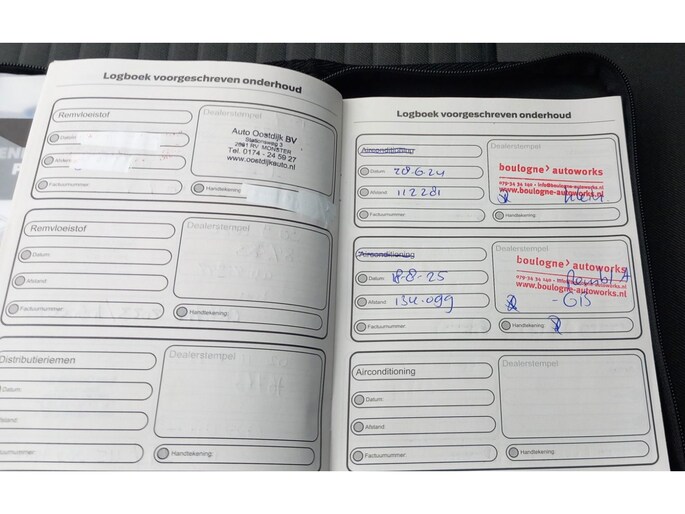 Logboek voorgeschreven onderhoud
Remvloeistof
Dealerstempel
Auto Oostdijk BV
Stationsweg 3
2681 RV MONSTER
Tel. 0174 - 24 59 27
www.oostdijkauto.nl
Datum:
Afstand:
Factuurnummer:
Handtekening:
Remvloeistof
Dealerstempel
Datum:
Afstand:
Factuurnummer:
Handtekening:
Distributieriemen
Dealerstempel
Datum:
Afstand:
Factuurnummer:
Handtekening:
Logboek voorgeschreven onderhoud
Airconditioning
Dealerstempel
boulogne> autoworks
www.boulogne-autoworks.nl
Datum: 28-6-24
Afstand: 112281
Factuurnummer:
Handtekening:
Airconditioning
Dealerstempel
boulogne> autoworks
www.boulogne-autoworks.nl
Datum: 18-8-25
Afstand: 134.099
Factuurnummer:
Handtekening:
Airconditioning
Dealerstempel
Datum:
Afstand:
Factuurnummer:
Handtekening: